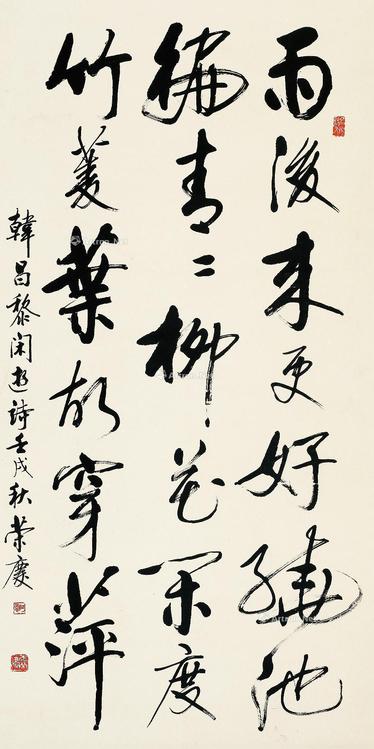 雨後來更好繞池
徧青二柳花閑度
竹菱葉故穿萍
韓昌黎閑遊詩壬戌秋榮慶